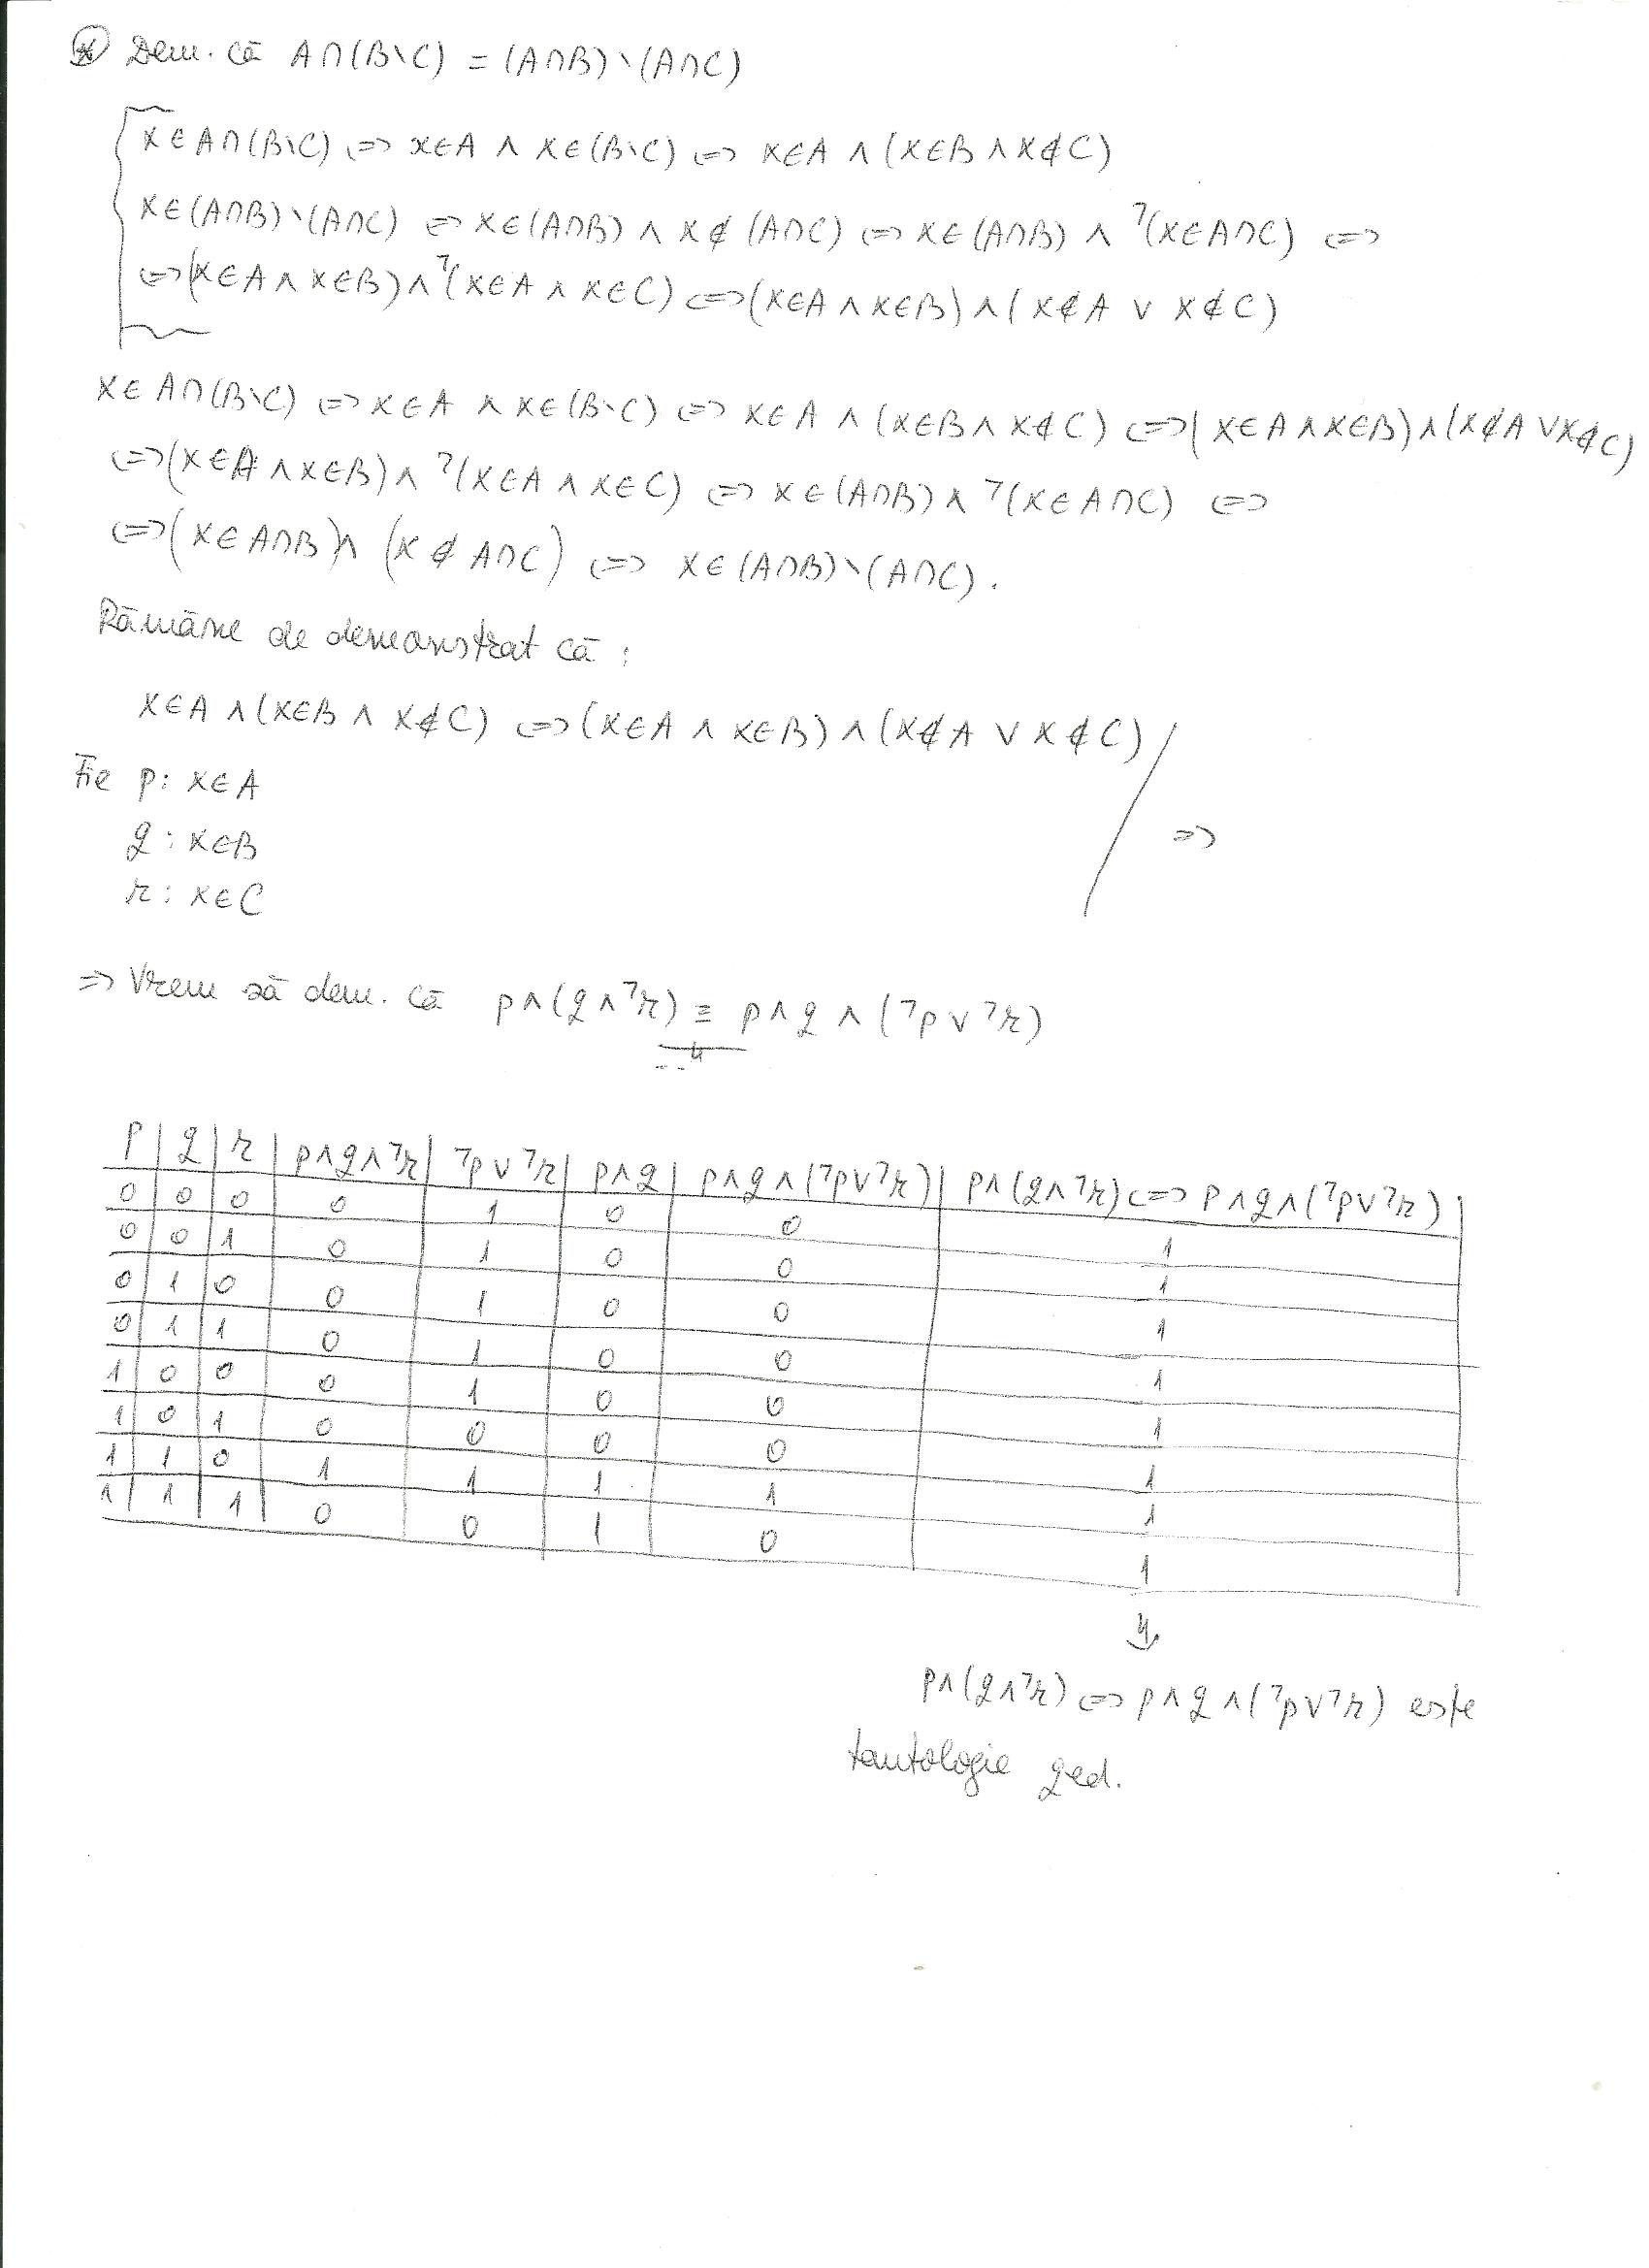 ⊛ Dem. că A∩(B\C) = (A∩B)\(A∩C)
x∈A∩(B\C) ⇔ x∈A ∧ x∈(B\C) ⇔ x∈A ∧ (x∈B ∧ x∉C)
x∈(A∩B)\(A∩C) ⇔ x∈(A∩B) ∧ x∉(A∩C) ⇔ x∈(A∩B) ∧ ¬(x∈A∩C) ⇔
⇔(x∈A ∧ x∈B) ∧ ¬(x∈A ∧ x∈C) ⇔ (x∈A ∧ x∈B) ∧ (x∉A ∨ x∉C)
x∈A∩(B\C) ⇔ x∈A ∧ x∈(B\C) ⇔ x∈A ∧ (x∈B ∧ x∉C) ⇔ (x∈A ∧ x∈B) ∧ (x∉A ∨ x∉C)
⇔(x∈A ∧ x∈B) ∧ ¬(x∈A ∧ x∈C) ⇔ x∈(A∩B) ∧ ¬(x∈A∩C) ⇔
⇔(x∈A∩B) ∧ (x∉A∩C) ⇔ x∈(A∩B)\(A∩C).
Rămâne de demonstrat că:
x∈A ∧ (x∈B ∧ x∉C) ⇔ (x∈A ∧ x∈B) ∧ (x∉A ∨ x∉C)
Fie p: x∈A
q: x∈B ⇒
r: x∈C
⇒ Vrem să dem. că p∧(q∧¬r) ≡ p∧q∧(¬p∨¬r)
p | q | r | p∧q∧¬r | ¬p∨¬r | p∧q | p∧q∧(¬p∨¬r) | p∧(q∧¬r) ⇔ p∧q∧(¬p∨¬r)
0 0 0 0 1 0 0 1
0 0 1 0 1 0 0 1
0 1 0 0 1 0 0 1
0 1 1 0 1 0 0 1
1 0 0 0 1 0 0 1
1 0 1 0 0 0 0 1
1 1 0 1 1 1 1 1
1 1 1 0 0 1 0 1
⇓
p∧(q∧¬r) ⇔ p∧q∧(¬p∨¬r) este
tautologie qed.